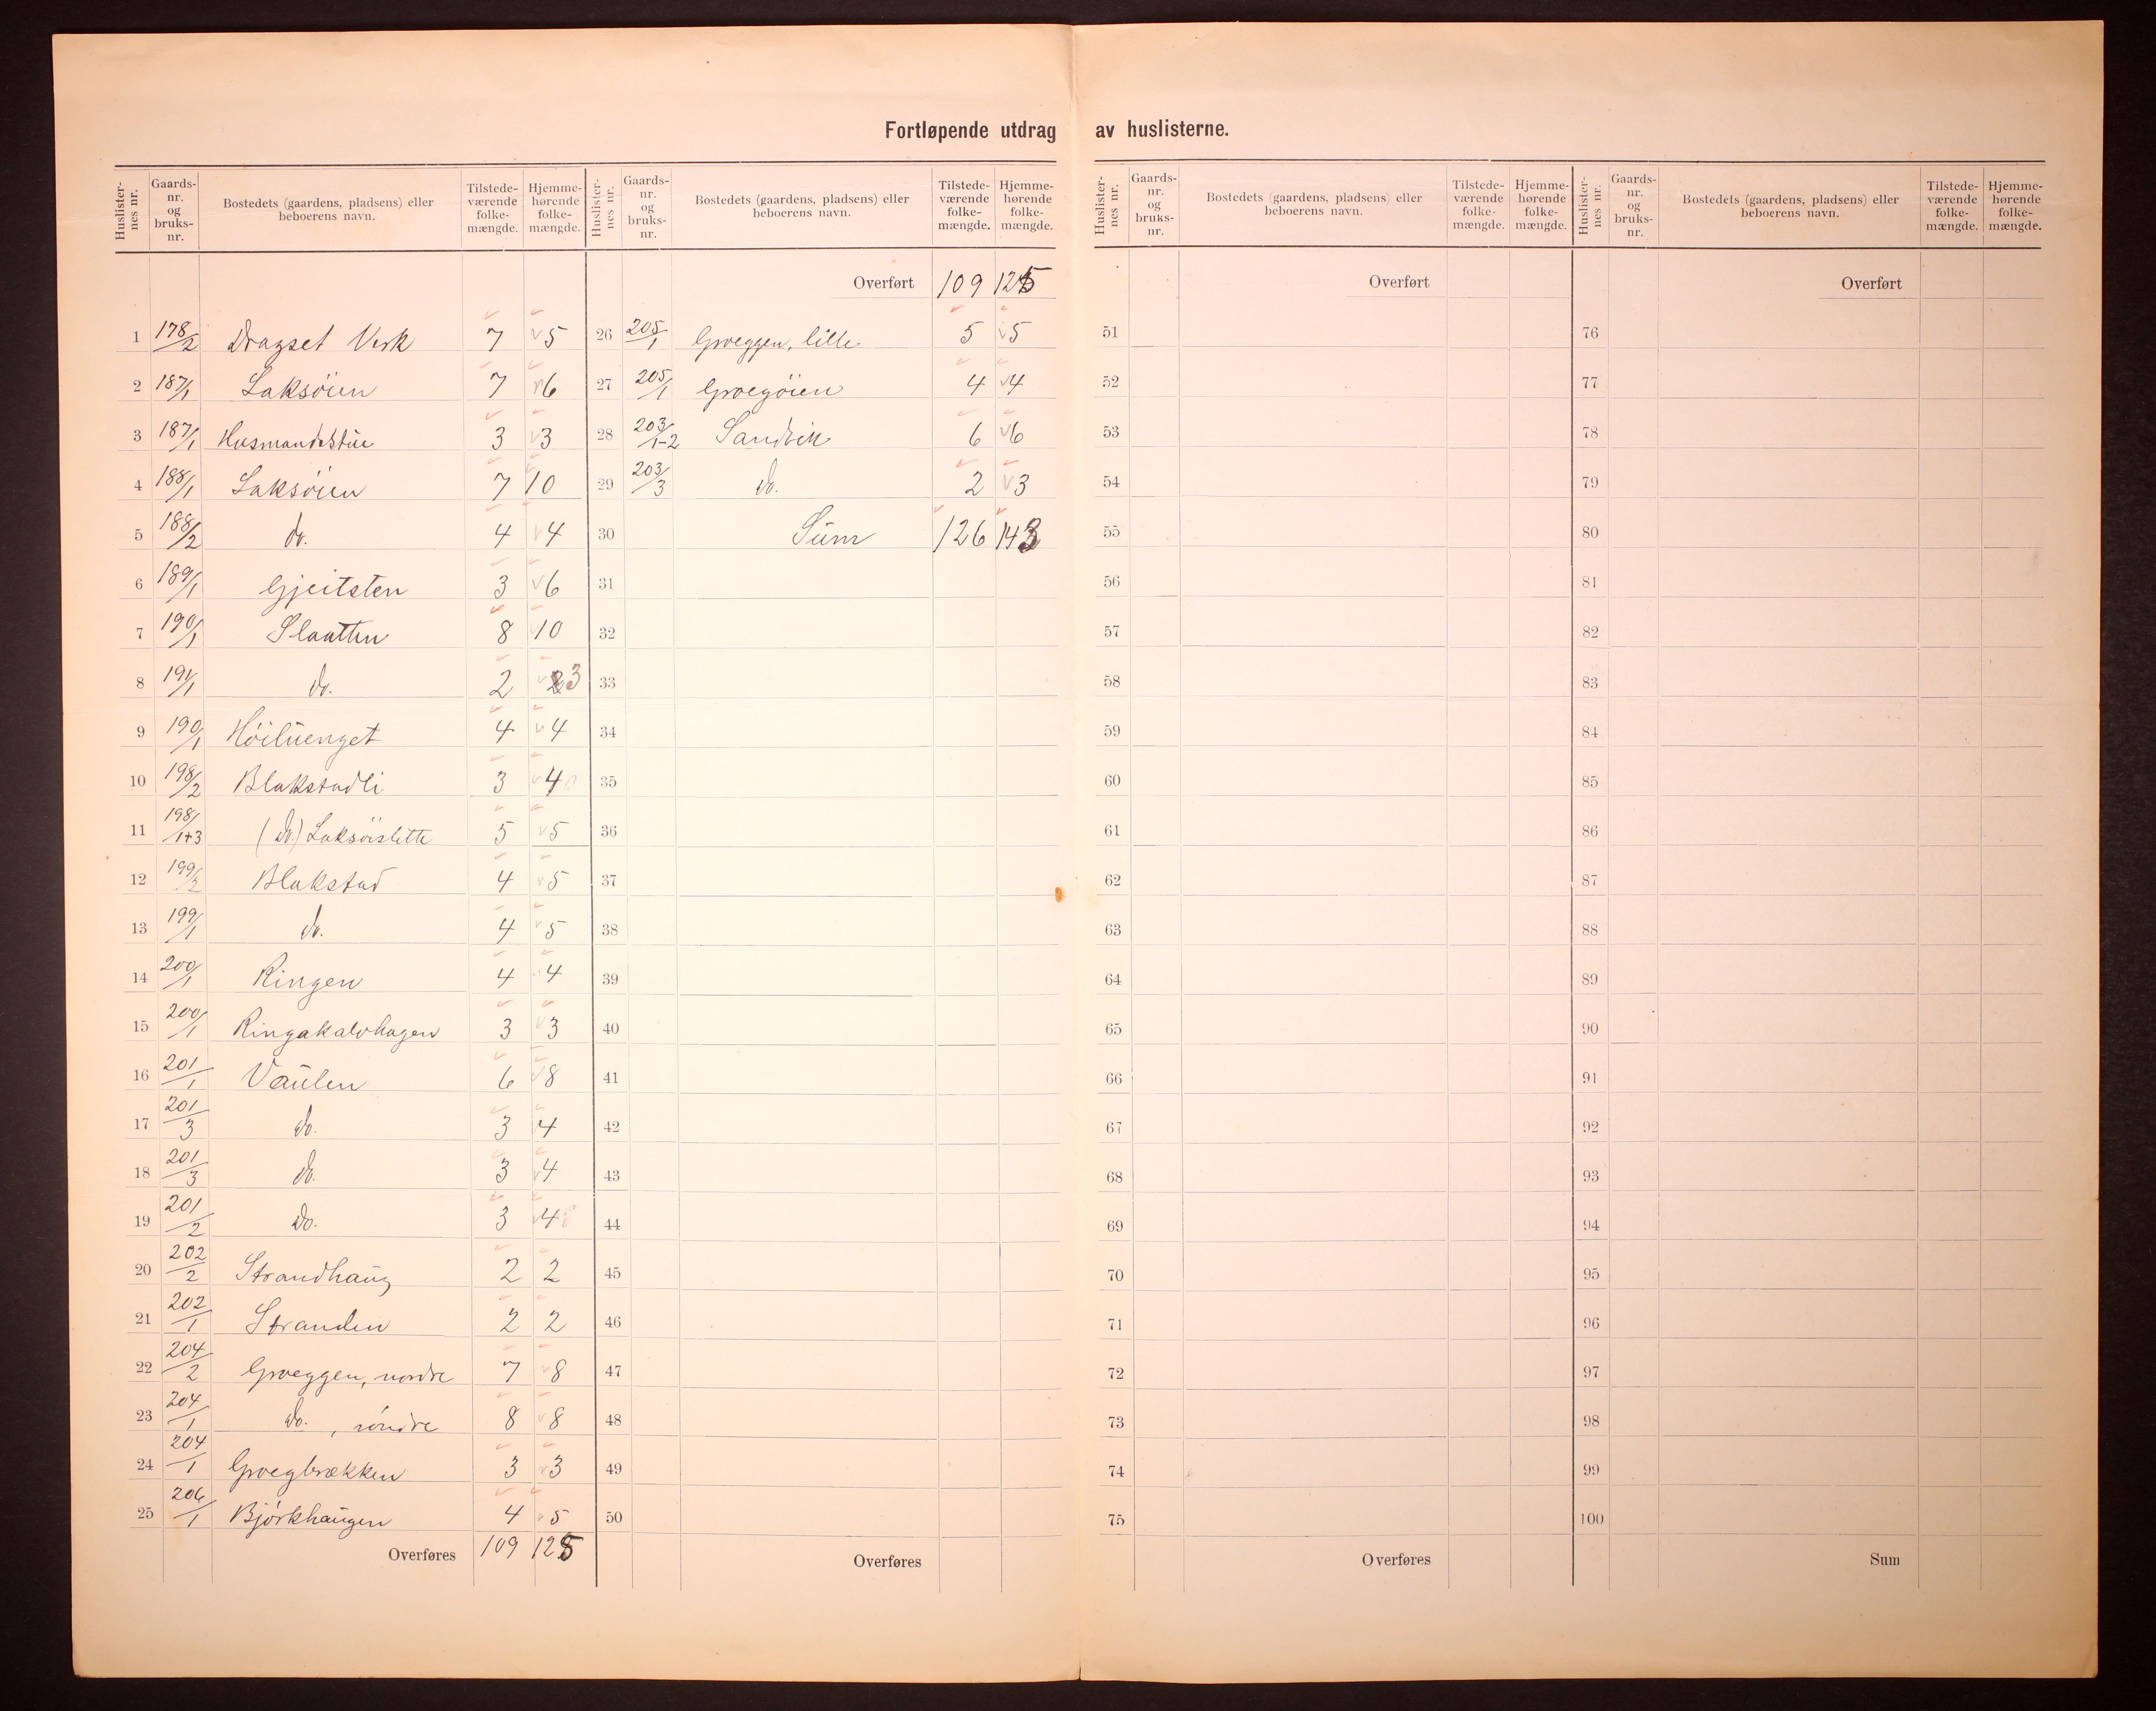 Fortløpende utdrag av huslisterne.
Huslisternes nr. Gaardsnr. og bruksnr. Bostedets (gaardens, pladsens) eller beboerens navn. Tilstedeværende folkemængde. Hjemmehørende folkemængde.
1 178/2 Dragset Verk 7 5
2 187/1 Laksøien 7 6
3 187/1 Husmandsstue 3 3
4 188/1 Laksøien 7 10
5 188/2 do. 4 4
6 189/1 Gjeitsten 3 6
7 190/1 Slaatten 8 10
8 191/1 do. 2 3
9 190/1 Høiluenget 4 4
10 198/2 Blakstadli 3 4
11 198/1+3 (do.) Laksøislette 5 5
12 199/2 Blakstad 4 5
13 199/1 do. 4 5
14 200/1 Ringen 4 4
15 200/1 Ringakalvhagen 3 3
16 201/1 Vaulen 6 8
17 201/3 do. 3 4
18 201/3 do. 3 4
19 201/2 do. 3 4
20 202/2 Strandhaug 2 2
21 202/1 Stranden 2 2
22 204/2 Groeggen, nordre 7 8
23 204/1 do. , søndre 8 8
24 204/1 Groegbrækken 3 3
25 206/1 Bjørkhaugen 4 5
Overføres 109 125
Huslisternes nr. Gaardsnr. og bruksnr. Bostedets (gaardens, pladsens) eller beboerens navn. Tilstedeværende folkemængde. Hjemmehørende folkemængde.
Overført 109 125
26 205/1 Groeggen, lille 5 5
27 205/1 Groegøien 4 4
28 203/1-2 Sandvik 6 6
29 203/3 do. 2 3
30 Sum 126 143
31
32
33
34
35
36
37
38
39
40
41
42
43
44
45
46
47
48
49
50
Overføres
Huslisternes nr. Gaardsnr. og bruksnr. Bostedets (gaardens, pladsens) eller beboerens navn. Tilstedeværende folkemængde. Hjemmehørende folkemængde.
Overført
51
52
53
54
55
56
57
58
59
60
61
62
63
64
65
66
67
68
69
70
71
72
73
74
75
Overføres
Huslisternes nr. Gaardsnr. og bruksnr. Bostedets (gaardens, pladsens) eller beboerens navn. Tilstedeværende folkemængde. Hjemmehørende folkemængde.
Overført
76
77
78
79
80
81
82
83
84
85
86
87
88
89
90
91
92
93
94
95
96
97
98
99
100
Sum